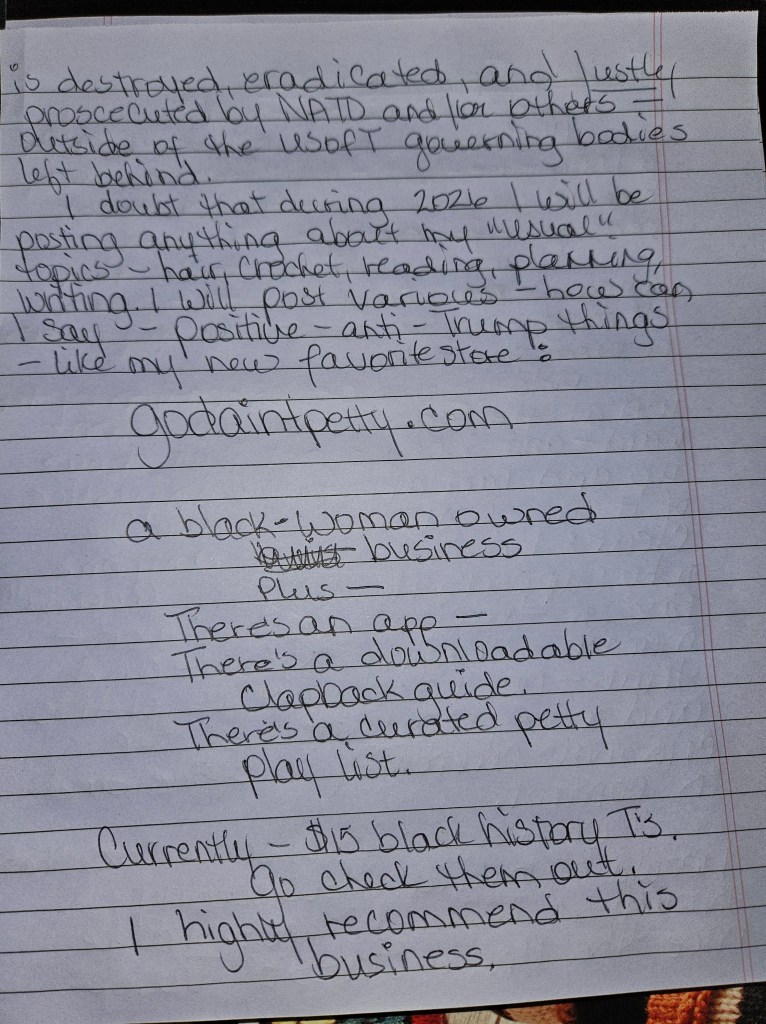 is destroyed, eradicated, and justly
proscecuted by NATO and/or others –
outside of the USofT governing bodies
left behind.
I doubt that during 2026 I will be
posting anything about my "usual"
topics – hair, crochet, reading, planning,
writing. I will post various – how can
I say – positive – anti-Trump things
– like my new favorite store:
godaintpetty.com
a black-woman owned
business
Plus –
There's an app –
There's a downloadable
Clapback guide.
There's a curated petty
play list.
Currently – $15 black history T's.
Go check them out.
I highly recommend this
business.